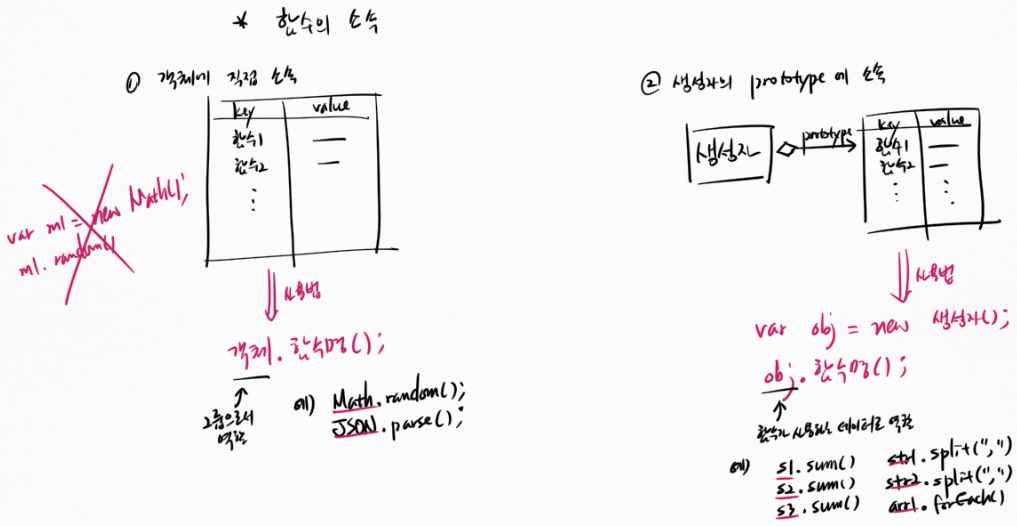 * 함수의 소속
① 객체에 직접 소속
key value
함수1 —
함수2 —
var m1 = new Math();
m1.random()
사용법
객체.함수명();
그룹으로서
역할
예) Math.random();
JSON.parse();
② 생성자의 prototype에 소속
생성자 prototype
key value
함수1 —
함수2 —
사용법
var obj = new 생성자();
obj.함수명();
함수가 사용하는 데이터로 역할
예) s1.sum() str1.split(",")
s2.sum() str2.split(",")
s3.sum() arr1.forEach()